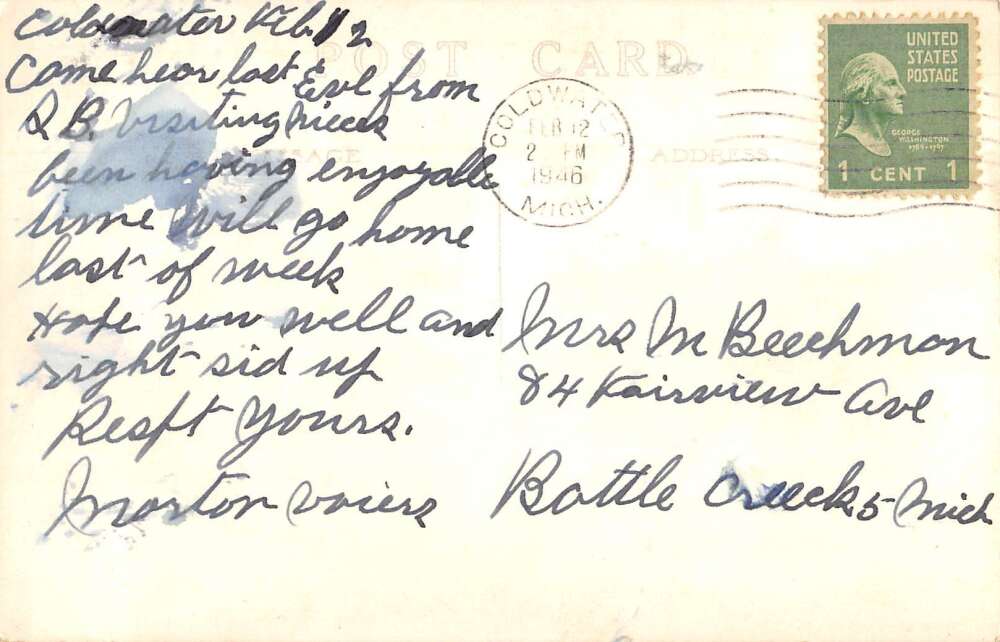 Coldwater Feb. 12
Came hear last Eve from
Q B. Visiting nieces
been having enjoyable
time Will go home
last of week
Hope you well and
right sid up
Respt Yours.
Morton
POST CARD
MESSAGE
ADDRESS
COLDWATER
FEB 12
2 PM
1946
MICH.
UNITED
STATES
POSTAGE
GEORGE
WASHINGTON
1789-1797
1 CENT 1
Mrs M Beechman
84 Fairview Ave
Battle Creek 5 - Mich